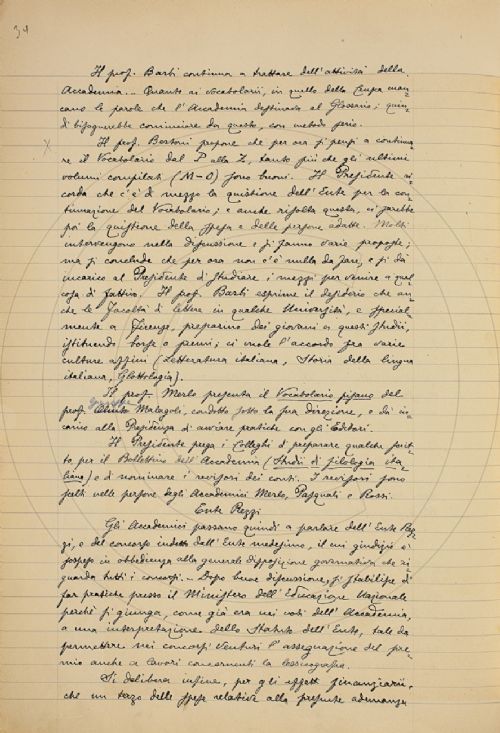 34
Il prof. Barbi continua a trattare dell'attività della
Accademia. – Quanto ai vocabolarii, in quello della Crusca man-
cano le parole che l'Accademia destinava al Glossario; quin-
di bisognerebbe cominciare da questo, con metodo serio.
x
Il prof. Bertoni propone che per ora si pensi a continua-
re il Vocabolario dal P alla Z, tanto più che gli ultimi
volumi compilati (M–O) sono buoni. Il Presidente ri-
corda che c'è di mezzo la quistione dell'Ente per la con-
tinuazione del Vocabolario; e anche risolta questa, ci sarebbe
poi la quistione della spesa e delle persone adatte. Molti
intervengono nella discussione e si fanno varie proposte;
ma si conclude che per ora non c'è nulla da fare, e si dà
incarico al Presidente di studiare i mezzi per venire a qual
cosa di fattivo. Il prof. Barbi esprime il desiderio che an-
che le Facoltà di lettere in qualche Università, e special
mente a Firenze, preparino dei giovani a questi studii,
istituendo borse o premi; ci vuole l'accordo fra varie
culture affini (Letteratura italiana, Storia della lingua
italiana, Glottologia).
Il prof. Merlo presenta il Vocabolario pisano del
prof. Giuseppe Malagoli, condotto sotto la sua direzione, e dà in-
carico alla Presidenza di avviare pratiche con gli Editori.
Il Presidente prega i Colleghi di preparare qualche scrit-
to per il Bollettino dell'Accademia (Studii di filologia ita
liana) e di nominare i revisori dei conti. I revisori sono
scelti nelle persone degli Accademici Merlo, Pasquali e Rossi.
Ente Rezzi
Gli Accademici passano quindi a parlare dell'Ente Rez-
zi, e del concorso indetto dall'Ente medesimo, il cui giudizio è
sospeso in obbedienza alla generale disposizione governativa che ri-
guarda tutti i concorsi. – Dopo breve discussione, si stabilisce di
far pratiche presso il Ministero dell'Educazione Nazionale
perchè si giunga, come già era nei voti dell'Accademia,
a una interpretazione dello Statuto dell'Ente, tale da
permettere nei concorsi venturi l'assegnazione del pre-
mio anche a lavori concernenti la lessicografia.
Si delibera infine, per gli effetti finanziarii,
che un terzo delle spese relative alla presente adunanza